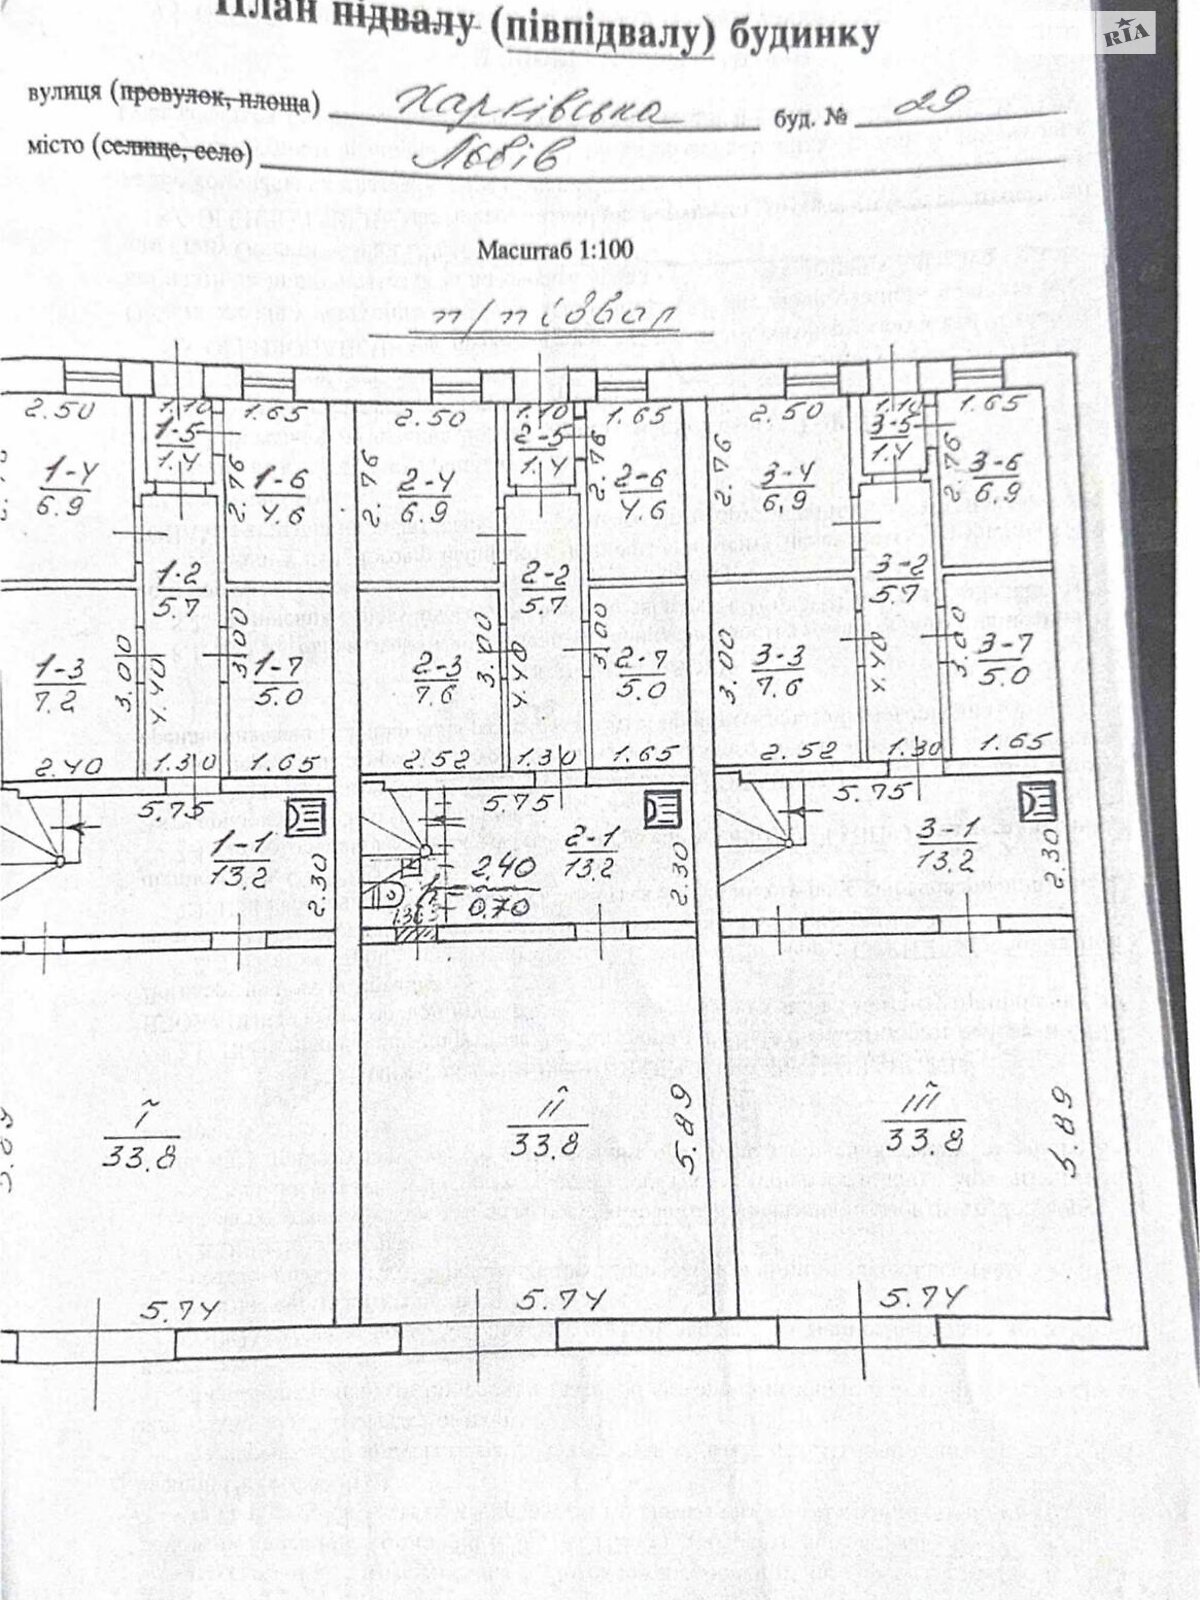 План підвалу (півпідвалу) будинку
RIA
вулиця (провулок, площа) Харківська буд. № 29
місто (селище, село) Львів
Масштаб 1:100
п/підвал
2.50 1.10 1.65 2.50 1.10 1.65 2.50 1.10 1.65
1-5 2-5 3-5
1.4 1.4 1.4
1-4 2.76 1-6 2.76 2-4 2.76 2-6 2.76 3-4 2.76 3-6
6.9 4.6 6.9 4.6 6,9 6.9
1-2 2-2 3-2
5.7 5.7 5.7
1-3 3.00 4.40 3.00 1-7 2-3 3.00 4.40 3.00 2-7 3.00 3-3 4.40 3.00 3-7
7.2 5.0 7.6 5.0 7.6 5.0
2.40 1.30 1.65 2.52 1.30 1.65 2.52 1.30 1.65
5.75 5.75 5.75
1-1 2-1 3-1
13.2 2.30 13.2 2.30 13.2 2.30
h= 2.40
0.70
I II III
33.8 33.8 33.8
5.89 5.89 5.89
5.74 5.74 5.74